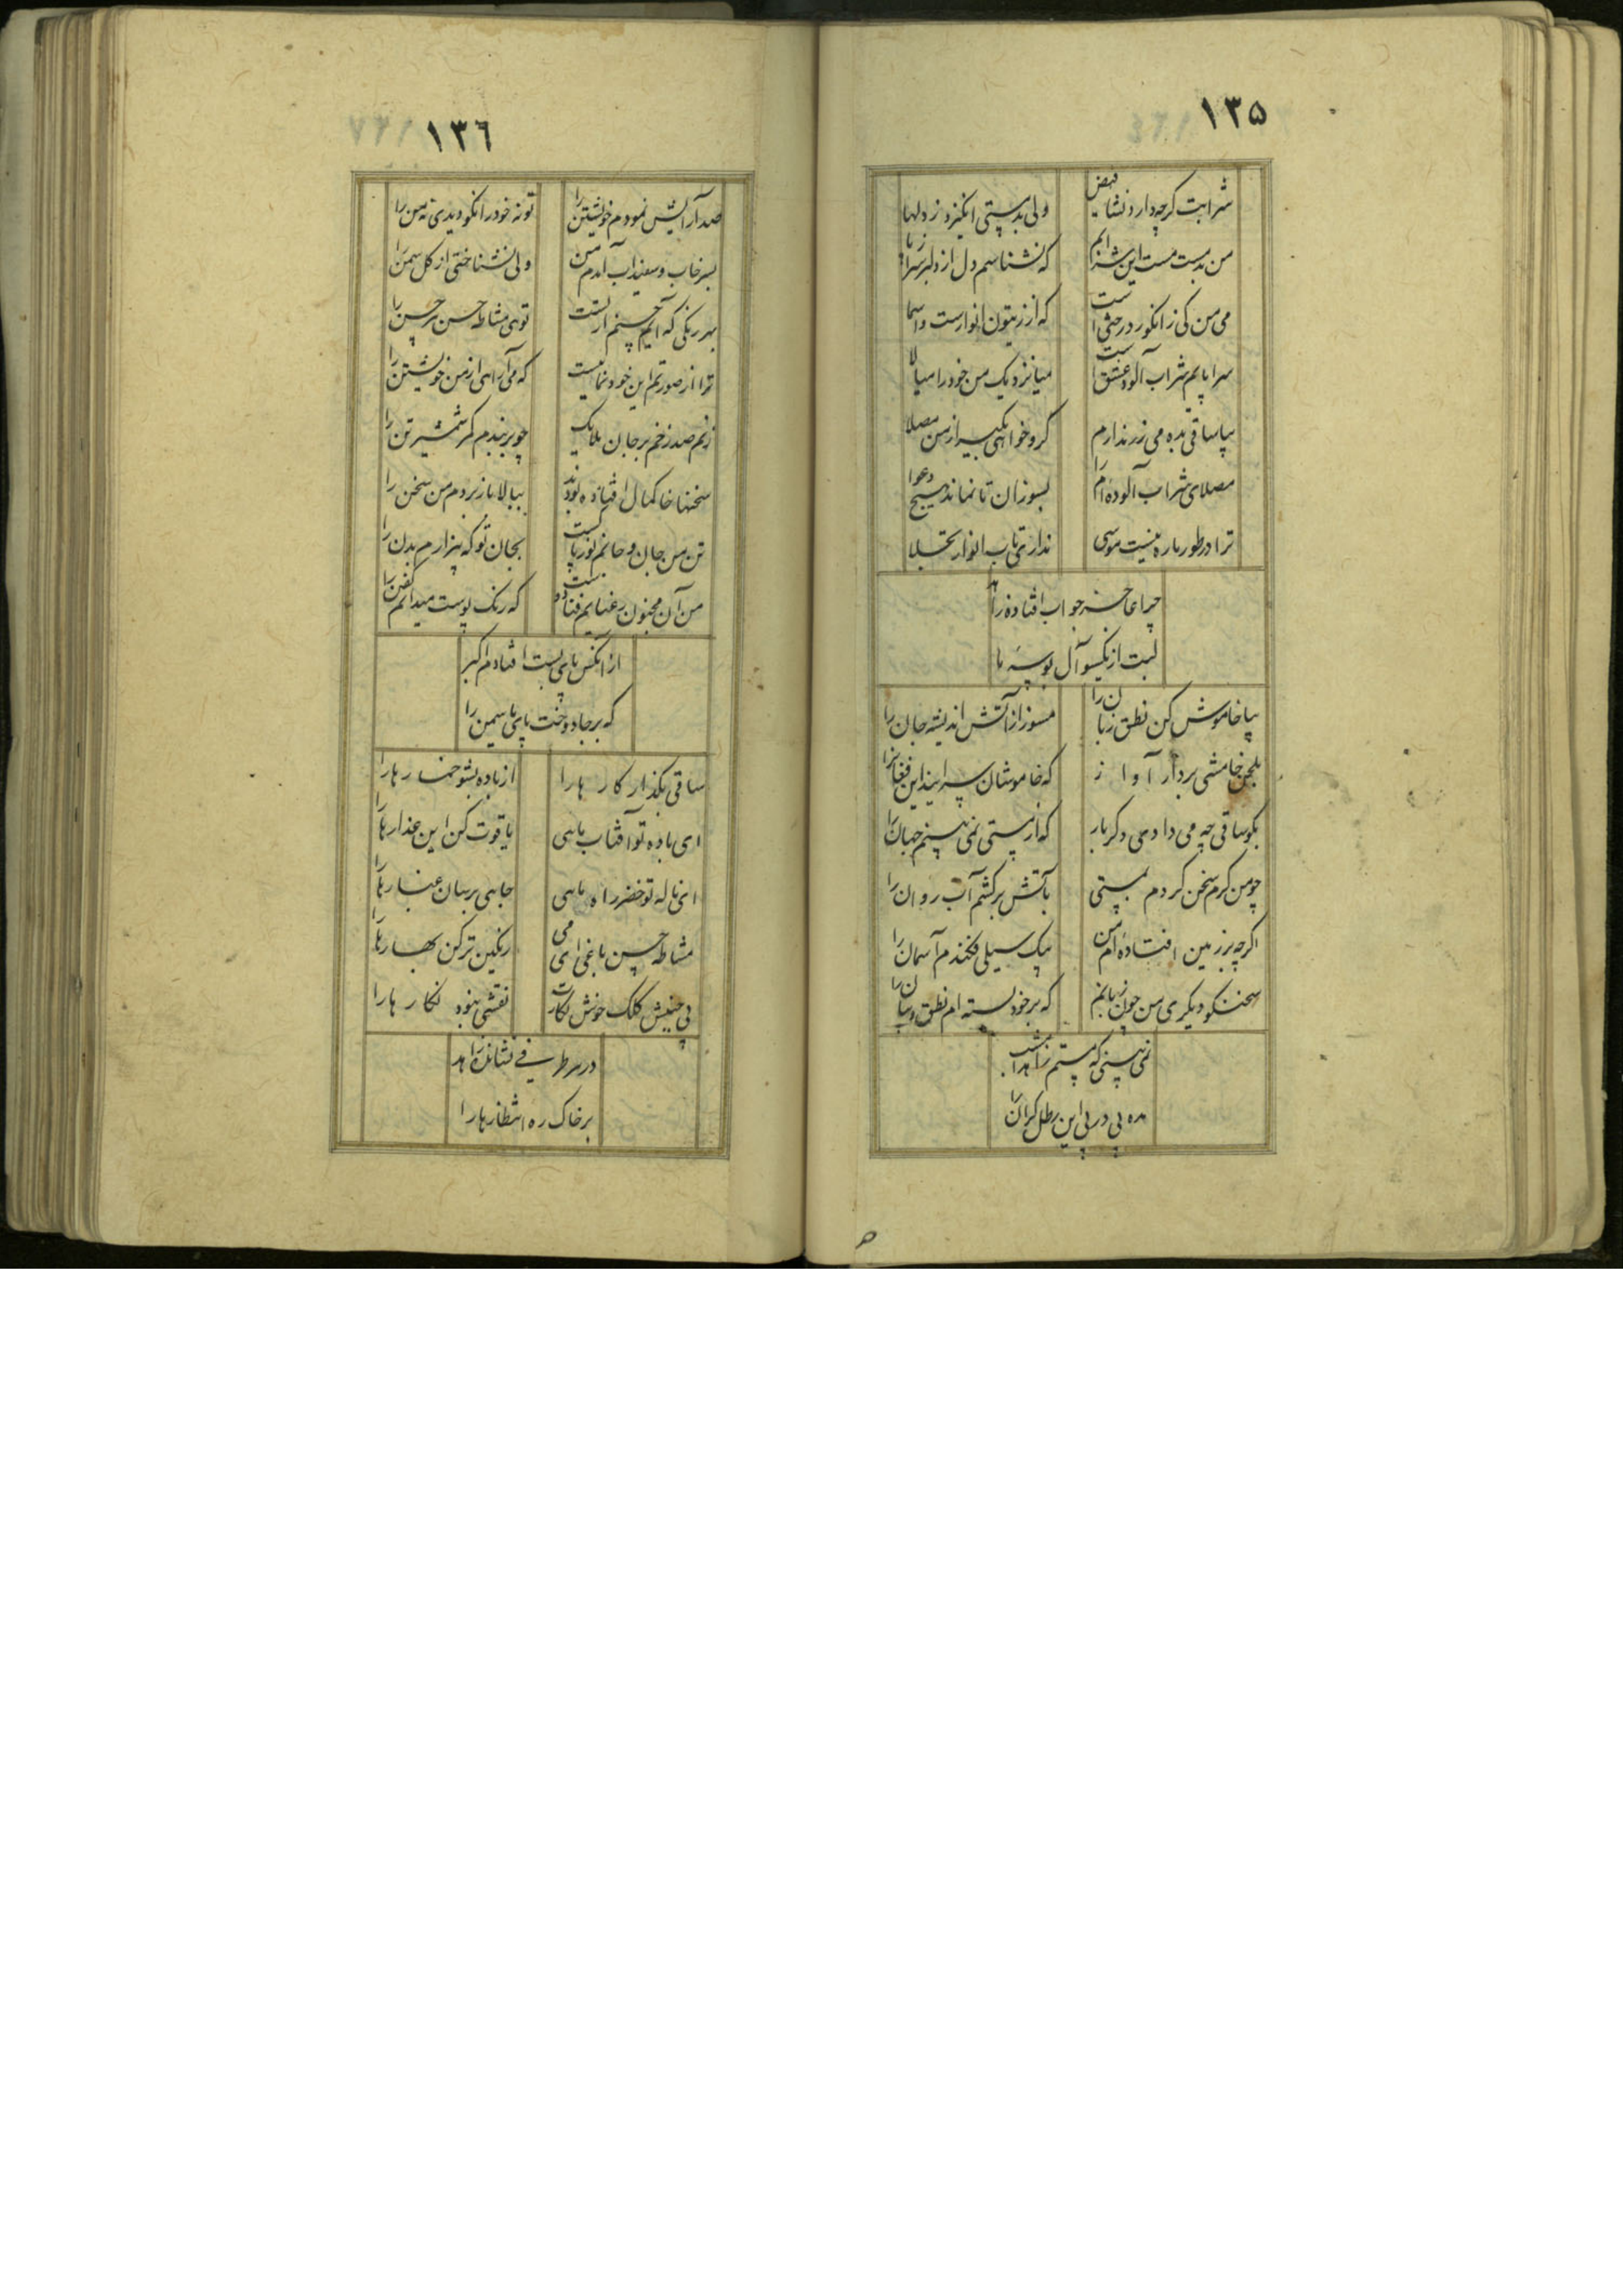 ١٣٥
شرابت کرچه دارد نشاء فیض
ولی بدمستی انکیزد ز دلها
من بدمست مست این شرابم
که نشناسم دل از دلبر سراپا
می من کی ز انکور درختی است
که از زیتون انوارست و اسما
سراپایم شراب آلود عشق است
میا نزدیک من خود را میالا
بیا ساقی بده می زر ندارم
کرو خواهی بکیر از من مصلا
مصلای شراب آلوده‌ام را
بسوزان تا نماند هیچ دعوا
ترا در طور باره نیست موسی
نداری تاب انوار تجلا
چرا عاجز جواب افتاده زاهد
لبت از یکسو آل بوسه با
بیا خاموش کن نطق زبان را
مسوز از آتش اندیشه جان را
بلحن خامشی بردار آواز
که خاموشان سرایند این فغانرا
بکو ساقی چه می دادی دکر بار
که از مستی نمی بینم جهان را
چو من کرم سخن کردم بمستی
بآتش برکشم آب روان را
اکرچه بر زمین افتاده‌ام من
بیک سیلی فکندم آسمان را
سخنکو دیکری من چون زبانم
که بر خود بسته‌ام نطق و بیان را
نمی بینی که مستم زاهد امشب
مده پی در پی این رطل کران را
١٣٦
صد آرایش نمودم خویشتن را
تو نه خود را نکو دیدی نه من را
بسرخاب و سفیداب آمدم من
ولی نشناختی از کل سمن را
بهر رنکی که آیم چشم ار تست
توی مشاطه حسن هر حسن را
ترا از صورتم این خودنمایست
که می آرایی از من خویشتن را
زنم صد زخم بر جان ملایک
چو بربندم کمر شمشیر تن را
سخنها خاکمال افتاده بودند
ببالا باز بردم من سخن را
تن من جان و جانم نور پاکست
بجان تو که بیزارم بدن را
من آن مجنون رعنایم فتاده است
که رنک پوست میدانم کفن را
از آنکس پای بست افتادم اکبر
که بر جا دوخت پای یاسمین را
ساقی بکذار کار ها را
از باده بشو خمارها را
ای باده تو آفتاب باهی
یاقوت کن این عذارها را
ای ناله تو خضر راه باهی
جایی برسان غبارها را
مشاطه حسن باغی ای می
رنکین تر کن بهارها را
بی جنبش کلک خوش نکارت
نقشی نبود نکارها را
در هر طرفی نشانده زاهد
بر خاک ره انتظارها را